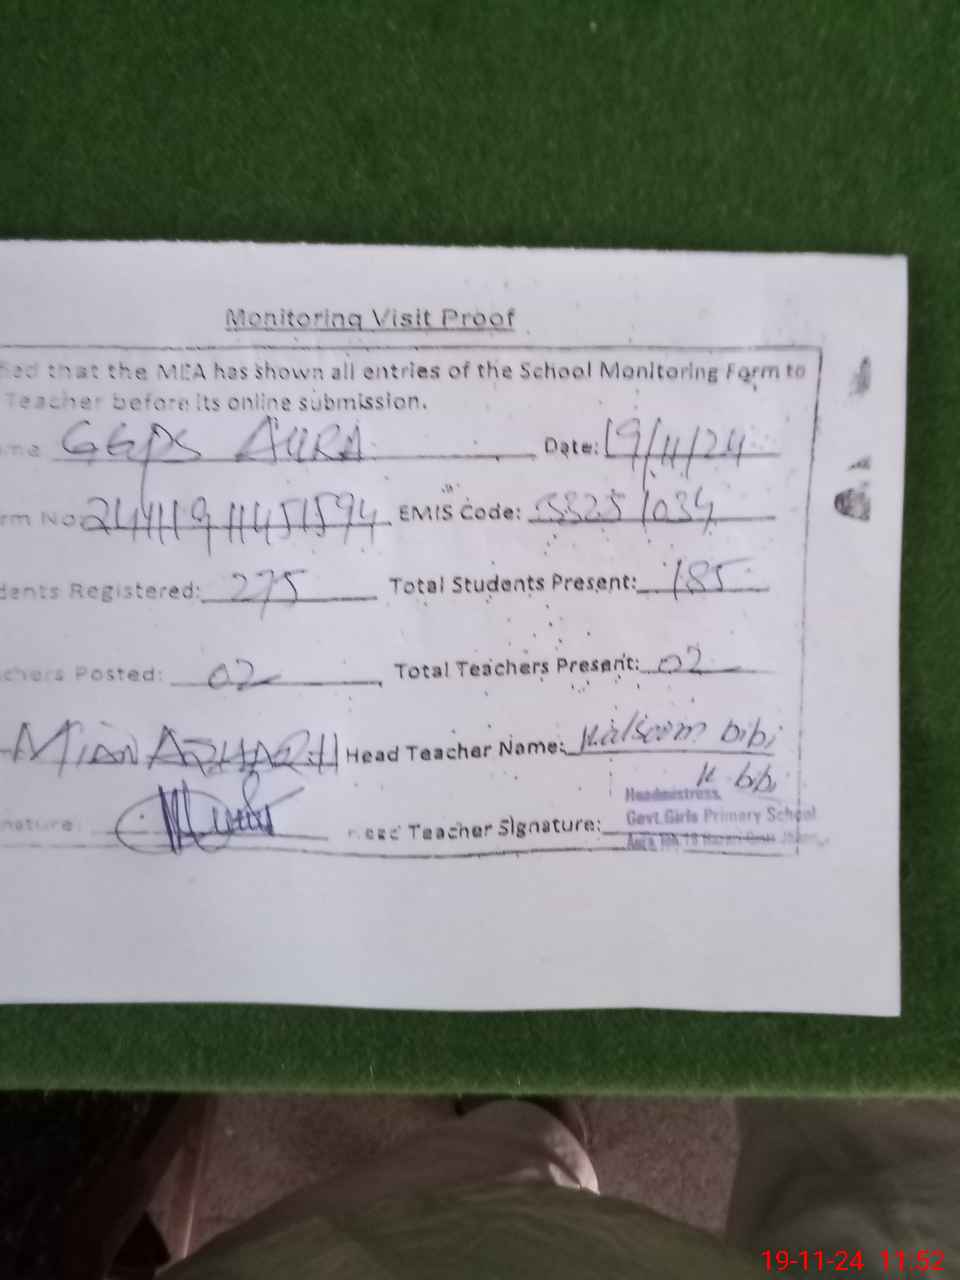 Monitoring Visit Proof
that the MEA has shown all entries of the School Monitoring Form to
Teacher before its online submission.
GGPS AURA Date: 19/11/24
No: EMIS Code: 33251034
Registered: 275 Total Students Present: 185
Posted: 02 Total Teachers Present: 02
MIAN AZHAR Head Teacher Name: Kalsoom bibi
K. bibi
Headmistress,
Teacher Signature: Govt.Girls Primary School
19-11-24 11:52